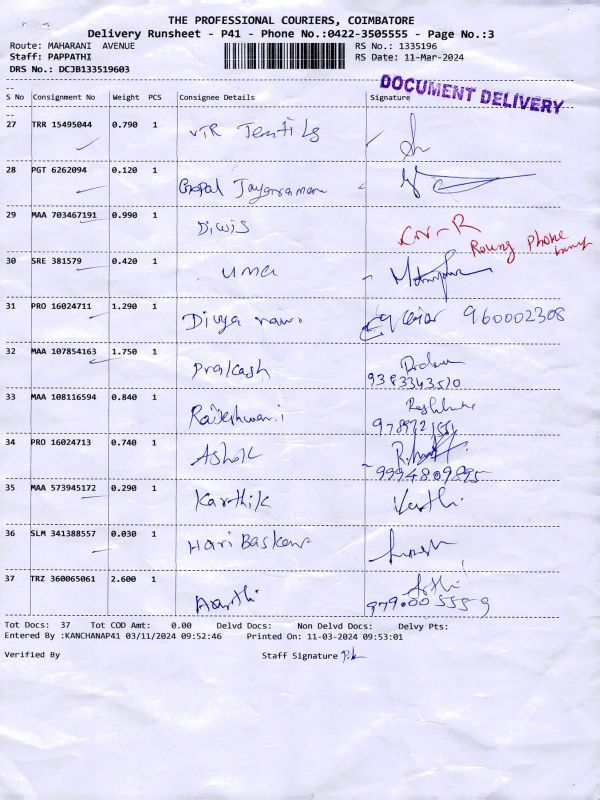 THE PROFESSIONAL COURIERS, COIMBATORE
Delivery Runsheet - P41 - Phone No.:0422-3505555 - Page No.:3
Route: MAHARANI AVENUE RS No.: 1335196
Staff: PAPPATHI RS Date: 11-Mar-2024
DRS No.: DCJB133519603
DOCUMENT DELIVERY
S No Consignment No Weight PCS Consignee Details Signature
27 TRR 15495044 0.790 1 VTR
28 PGT 6262094 0.120 1 Gopal Jayaraman
29 MAA 703467191 0.990 1 Diwis CN-R
Phone
30 SRE 381579 0.420 1 uma
31 PRO 16024711 1.290 1 Divya 960002308
32 MAA 107854163 1.750 1 Prakash
9383343510
33 MAA 108116594 0.840 1 Rajeshwari
34 PRO 16024713 0.740 1 Ashok
9994809895
35 MAA 573945172 0.290 1 Karthik
36 SLM 341388557 0.030 1 Hari Baskar
37 TRZ 360065061 2.600 1 Aarthi Arthi
Tot Docs: 37 Tot COD Amt: 0.00 Delvd Docs: Non Delvd Docs: Delvy Pts:
Entered By :KANCHANAP41 03/11/2024 09:52:46 Printed On: 11-03-2024 09:53:01
Verified By Staff Signature